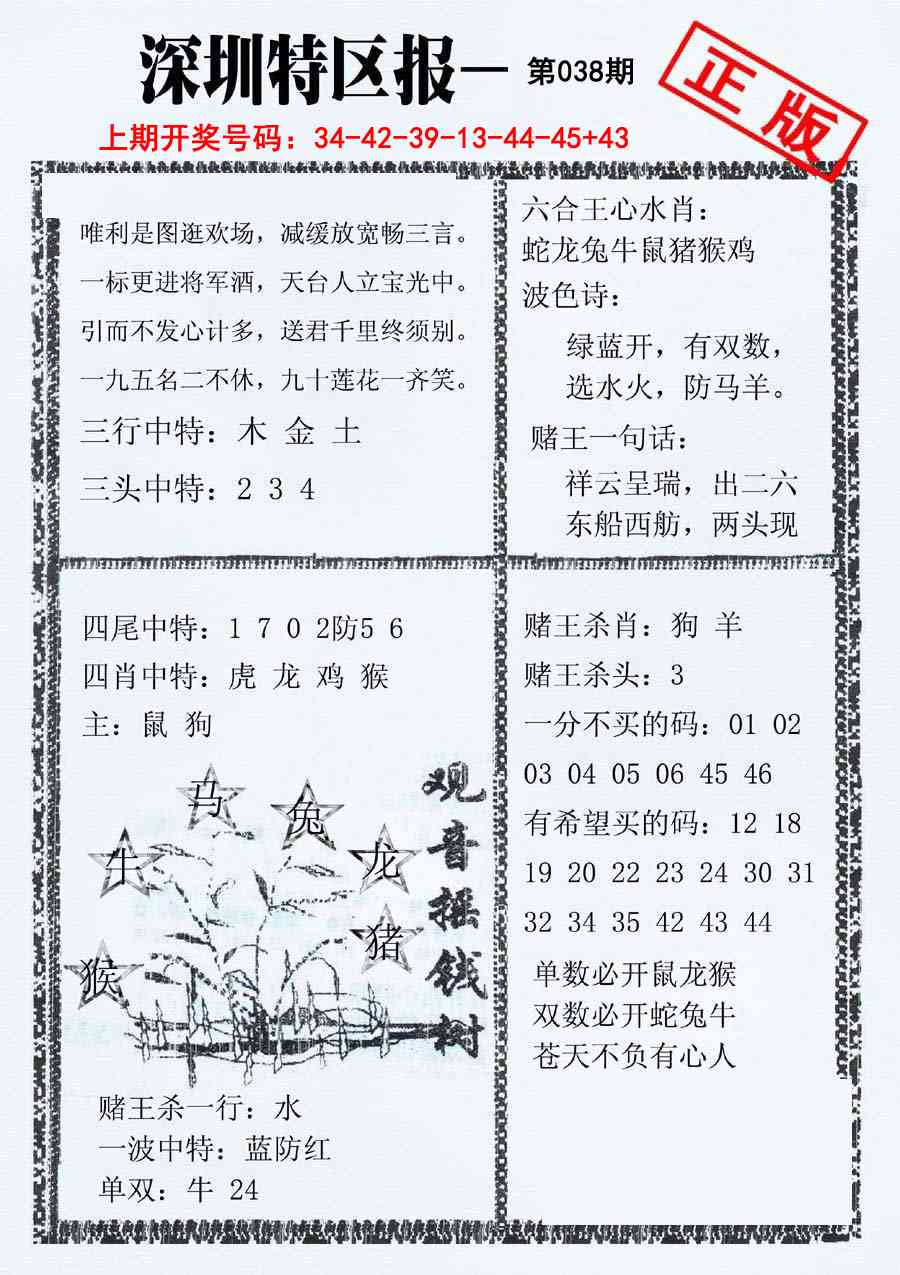 深圳特区报— 第038期
正版
上期开奖号码：34-42-39-13-44-45+43
唯利是图逛欢场，减缓放宽畅三言。
一标更进将军酒，天台人立宝光中。
引而不发心计多，送君千里终须别。
一九五名二不休，九十莲花一齐笑。
三行中特：木 金 土
三头中特：2 3 4
六合王心水肖：
蛇龙兔牛鼠猪猴鸡
波色诗：
绿蓝开，有双数，
选水火，防马羊。
赌王一句话：
祥云呈瑞，出二六
东船西舫，两头现
四尾中特：1 7 0 2防5 6
四肖中特：虎 龙 鸡 猴
主：鼠 狗
马
兔
牛
龙
猪
猴
观音摇钱树
赌王杀一行：水
一波中特：蓝防红
单双：牛 24
赌王杀肖：狗 羊
赌王杀头：3
一分不买的码：01 02
03 04 05 06 45 46
有希望买的码：12 18
19 20 22 23 24 30 31
32 34 35 42 43 44
单数必开鼠龙猴
双数必开蛇兔牛
苍天不负有心人